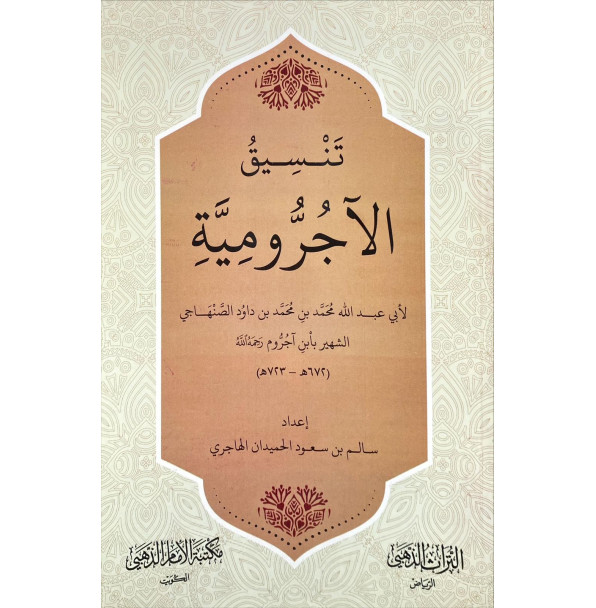 تَنْسِيقُ
الآجُرُّومِيَّةِ
لأبي عبد الله مُحَمَّد بنِ مُحَمَّد بن داوُد الصَّنْهَاجي
الشهير بأبن آجُرُّوم رَحِمَهُ اللَّهُ
(٦٧٢هـ – ٧٢٣هـ)
إعداد
سالم بن سعود الحميدان الهاجري
التراث الذهبي
الرياض
مكتبة الإمام الذهبي
الكويت